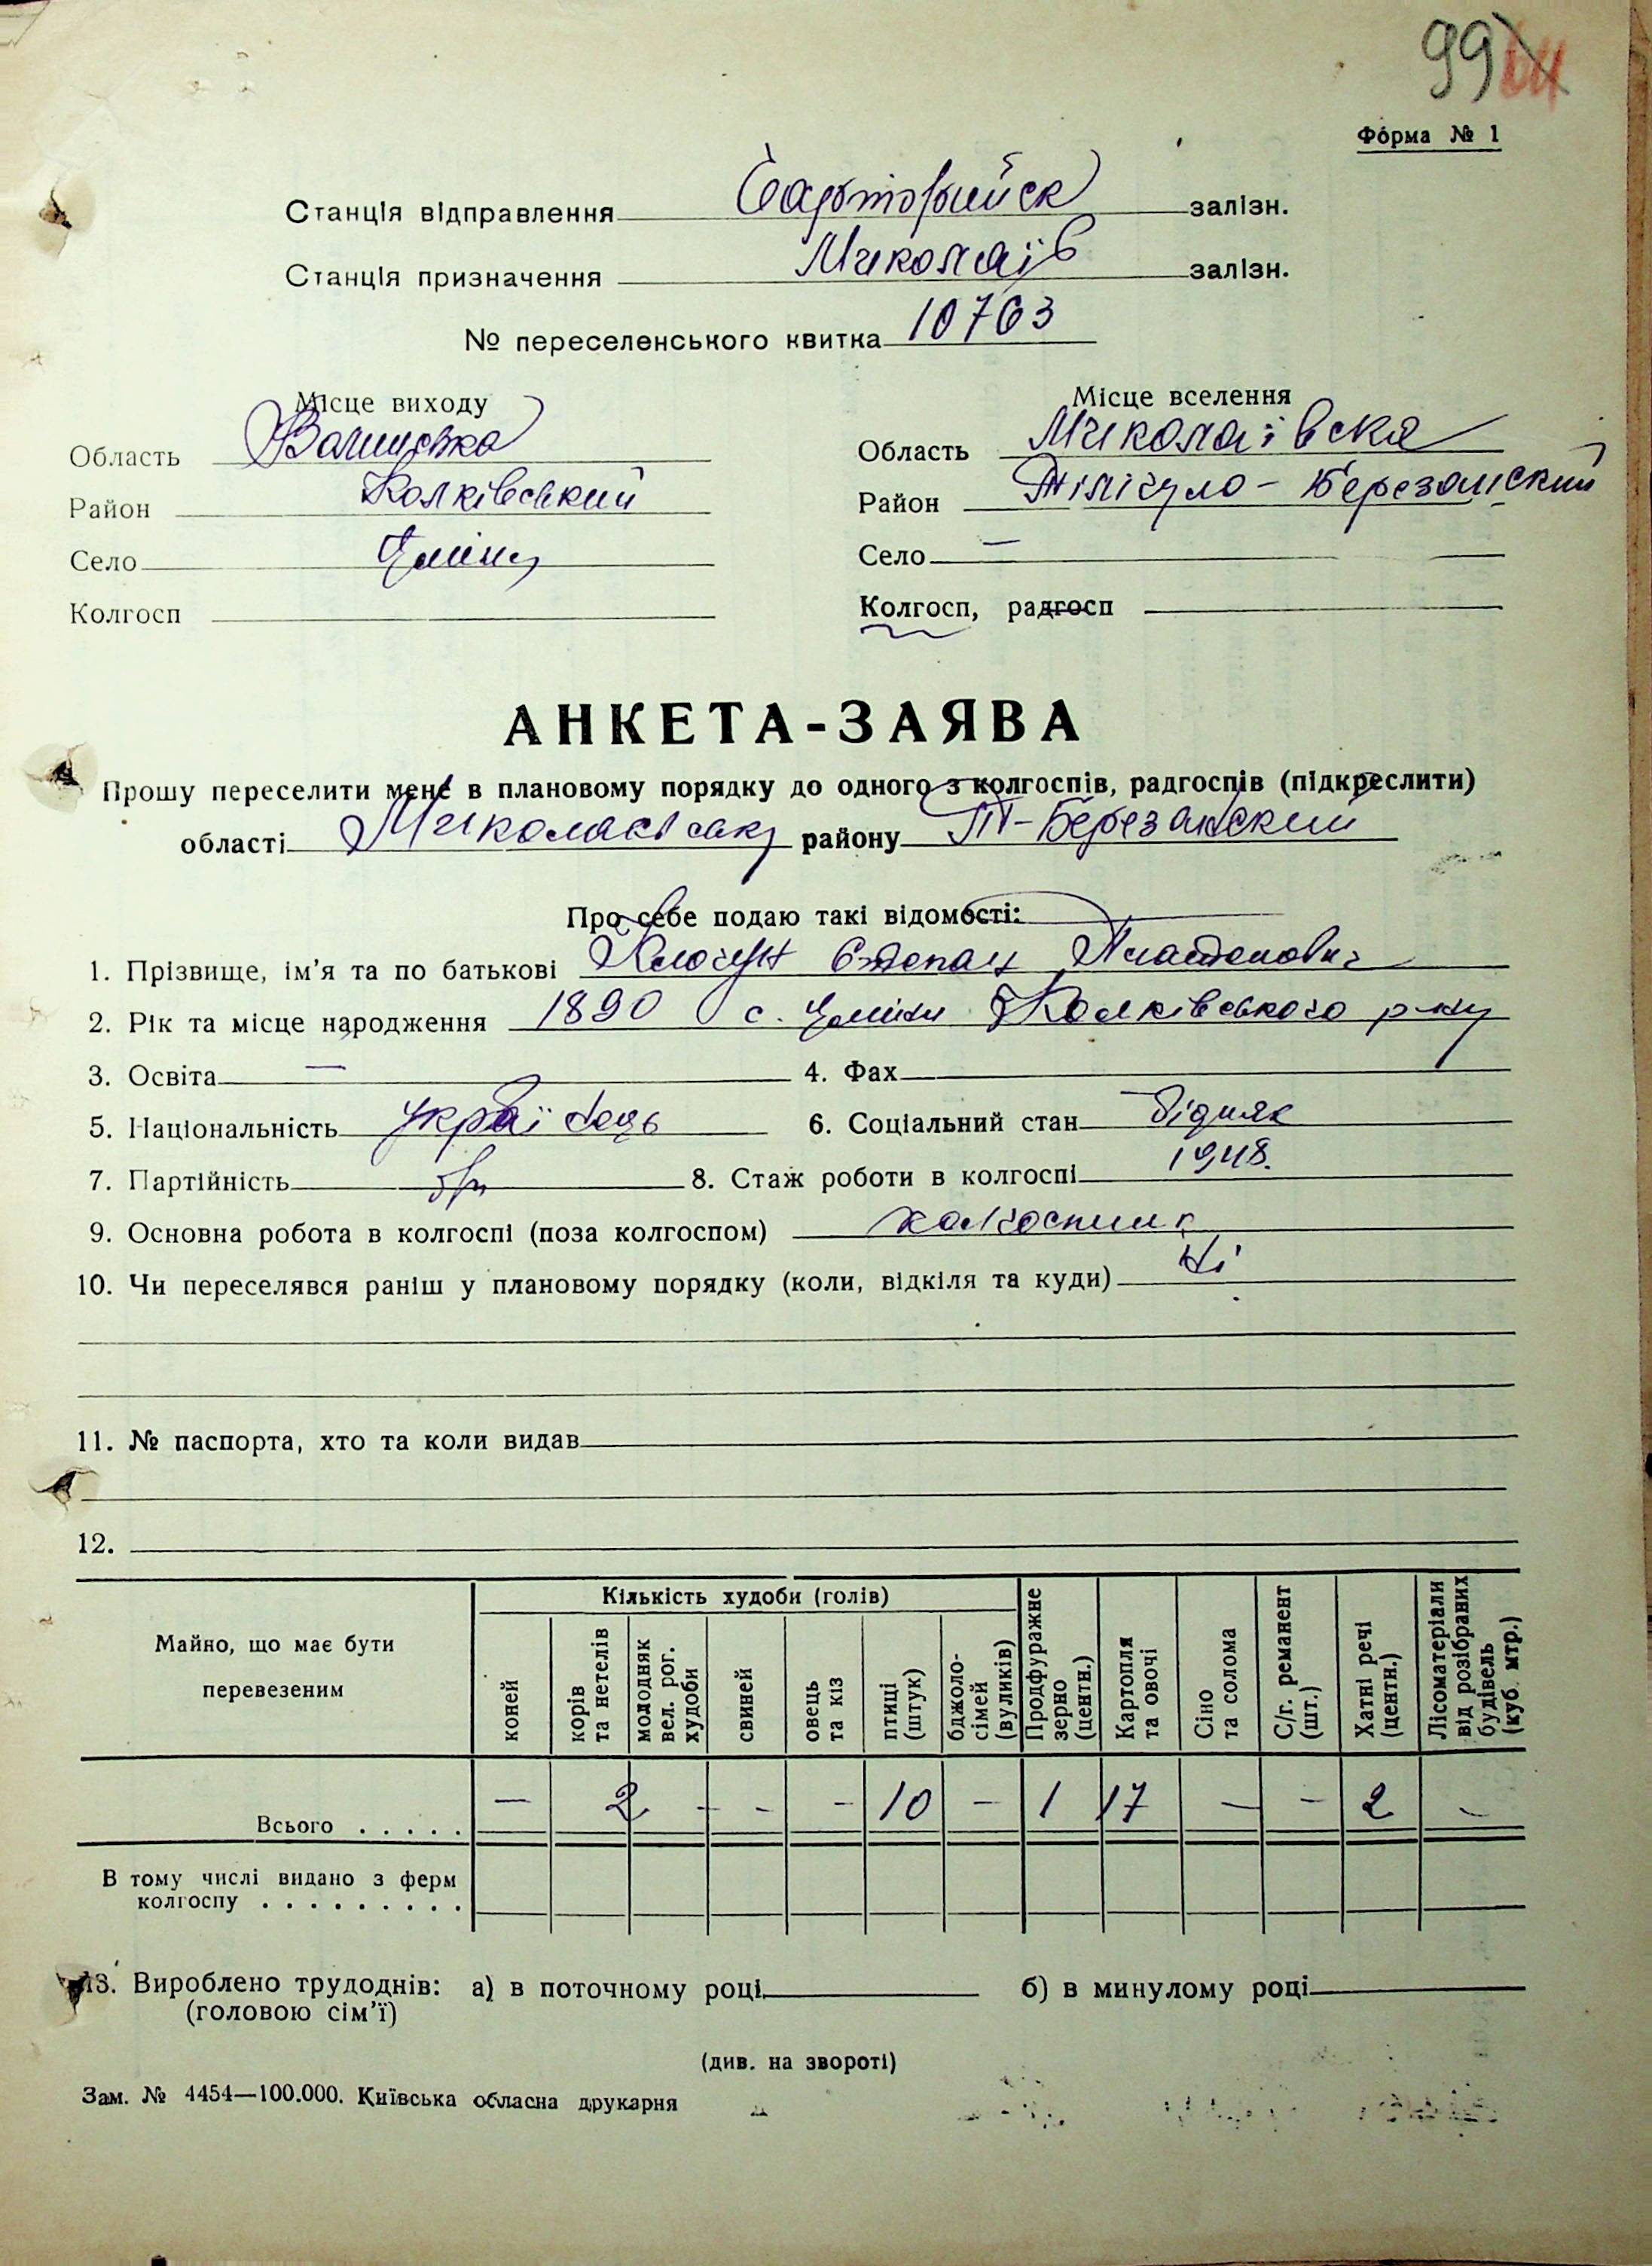 99
Форма № 1
Станція відправлення Чарторийск залізн.
Станція призначення Миколаїв залізн.
№ переселенського квитка 10763
Місце виходу
Область Волинська
Район Колківський
Село
Колгосп
Місце вселення
Область Миколаївска
Район Тілігуло-Березанский
Село —
Колгосп, радгосп
АНКЕТА-ЗАЯВА
Прошу переселити мене в плановому порядку до одного з колгоспів, радгоспів (підкреслити)
області району Т-Березанский
Про себе подаю такі відомості:
1. Прізвище, ім'я та по батькові Клочун Степан Платонович
2. Рік та місце народження 1890 с. Колківського р-ну
3. Освіта — 4. Фах
5. Національність українець 6. Соціальний стан бідняк
7. Партійність б/п 8. Стаж роботи в колгоспі 1948.
9. Основна робота в колгоспі (поза колгоспом) колгоспник
10. Чи переселявся раніш у плановому порядку (коли, відкіля та куди) Ні
11. № паспорта, хто та коли видав
12.
Майно, що має бути перевезеним
Кількість худоби (голів)
коней
корів та нетелів
молодняк вел. рог. худоби
свиней
овець та кіз
птиці (штук)
бджоло-сімей (вуликів)
Продфуражне зерно (центн.)
Картопля та овочі
Сіно та солома
С/г. реманент (шт.)
Хатні речі (центн.)
Лісоматеріали від розібраних будівель (куб. мтр.)
Всього . . . . . — 2 - - - 10 — 1 17 — - 2 -
В тому числі видано з ферм
колгоспу . . . . . . . . .
13. Вироблено трудоднів: а) в поточному році б) в минулому році
(головою сім'ї)
(див. на звороті)
Зам. № 4454—100.000. Київська обласна друкарня